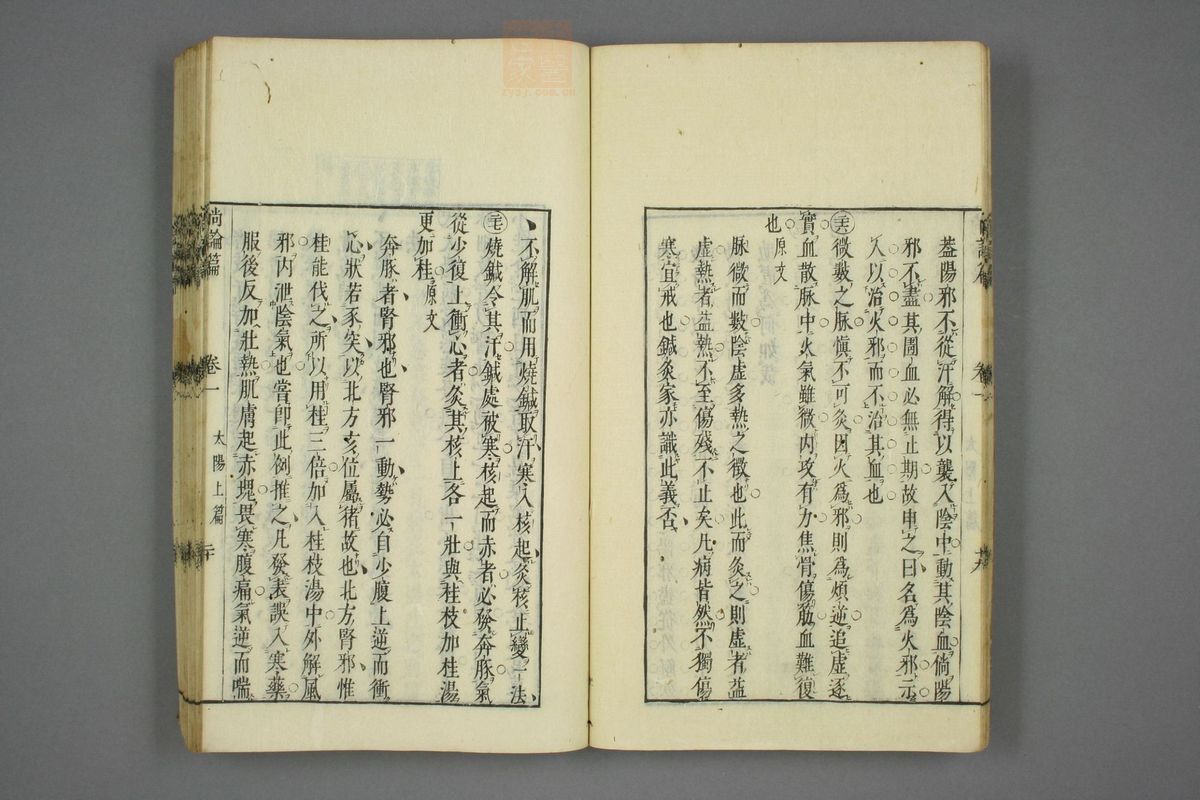 蓋陽邪不從汗解得以襲入陰中動其陰血倘陽
邪不盡其圊血必無止期故申之曰名爲火邪示
人以治火邪而不治其血也
微數之脉愼不可灸因火爲邪則爲煩逆追虛逐
實血散脉中火氣雖微內攻有力焦骨傷筋血難復
也原文
脉微而數陰虛多熱之徵也此而灸之則虛者益
虛熱者益熱不至傷殘不止矣凡病皆然不獨傷
寒宜戒也鍼灸家亦識此義否
卷一
不解肌而用燒鍼取汗寒入核起灸核止變一法
燒鍼令其汗鍼處被寒核起而赤者必發奔豚氣
從少復上衝心者灸其核上各一壯與桂枝加桂湯
更加桂原文
奔豚者腎邪也腎邪一動勢必自少腹上逆而衝
心狀若豕突以北方亥位屬猪故也北方腎邪惟
桂能伐之所以用桂三倍加入桂枝湯中外解風
邪內泄陰氣也嘗卽此例推之凡發表誤入寒藥
服後反加壯熱肌膚起赤塊畏寒腹痛氣逆而喘
尚論篇
卷一
太陽上篇
二十
家醫
zysj.com.cn